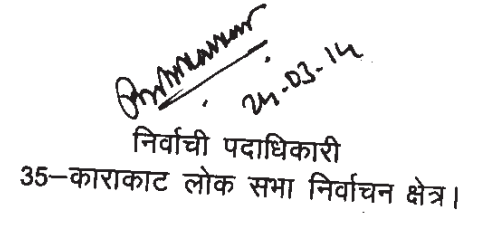 24-03-14
निर्वाची पदाधिकारी
35–काराकाट लोक सभा निर्वाचन क्षेत्र।